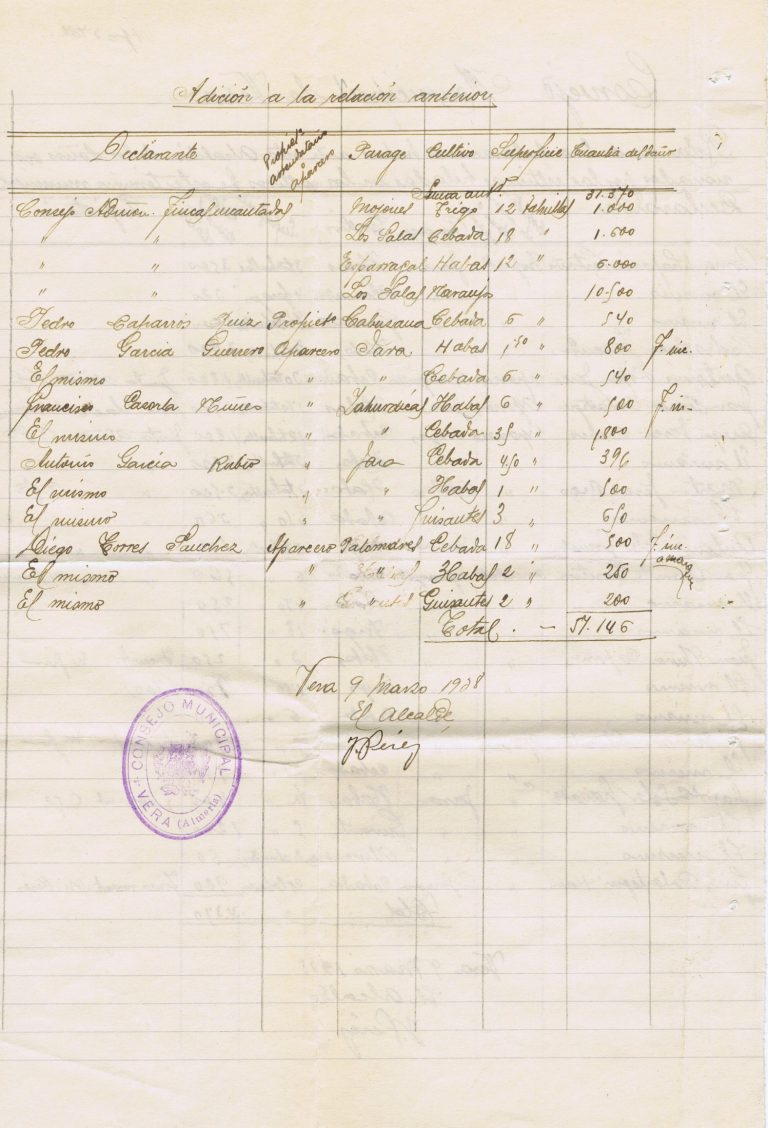 Adición a la relación anterior
Declarante Propiet. arrendatario aparcero Parage Cultivo Superficie Cuantía del daño
Suma ant. 31.370
Consejo Admón. Fincas incautadas Mojones Trigo 12 tahullas 1.000
" " Los Salas Cebada 18 " 1.600
" " Esparragal Habas 12 " 6.000
" " Los Salas Naranjos 10.500
Pedro Caparrós Ruiz Propiet. Cabuzana Cebada 6 " 540
Pedro Garcia Guerrero Aparcero Jara Habas 1,50 " 800 F. inc.
El mismo " " Cebada 6 " 540
Francisco Casorla Nuñes " Zahurdicas Habas 6 " 500 F. in.
El mismo " " Cebada 35 " 1.800
Antonio García Rubio " Jara Cebada 4,50 " 396
El mismo " " Habas 1 " 500
El mismo " Guisantes 3 " 650
Diego Torres Sanchez Aparcero Palomares Cebada 18 " 500 F. inc.
El mismo " " Habas 2 " 250
El mismo " " Guisantes 2 " 200
Total . – 57.146
Vera 9 Marzo 1938
El Alcalde,
J. Pérez
CONSEJO MUNICIPAL
VERA (Almería)